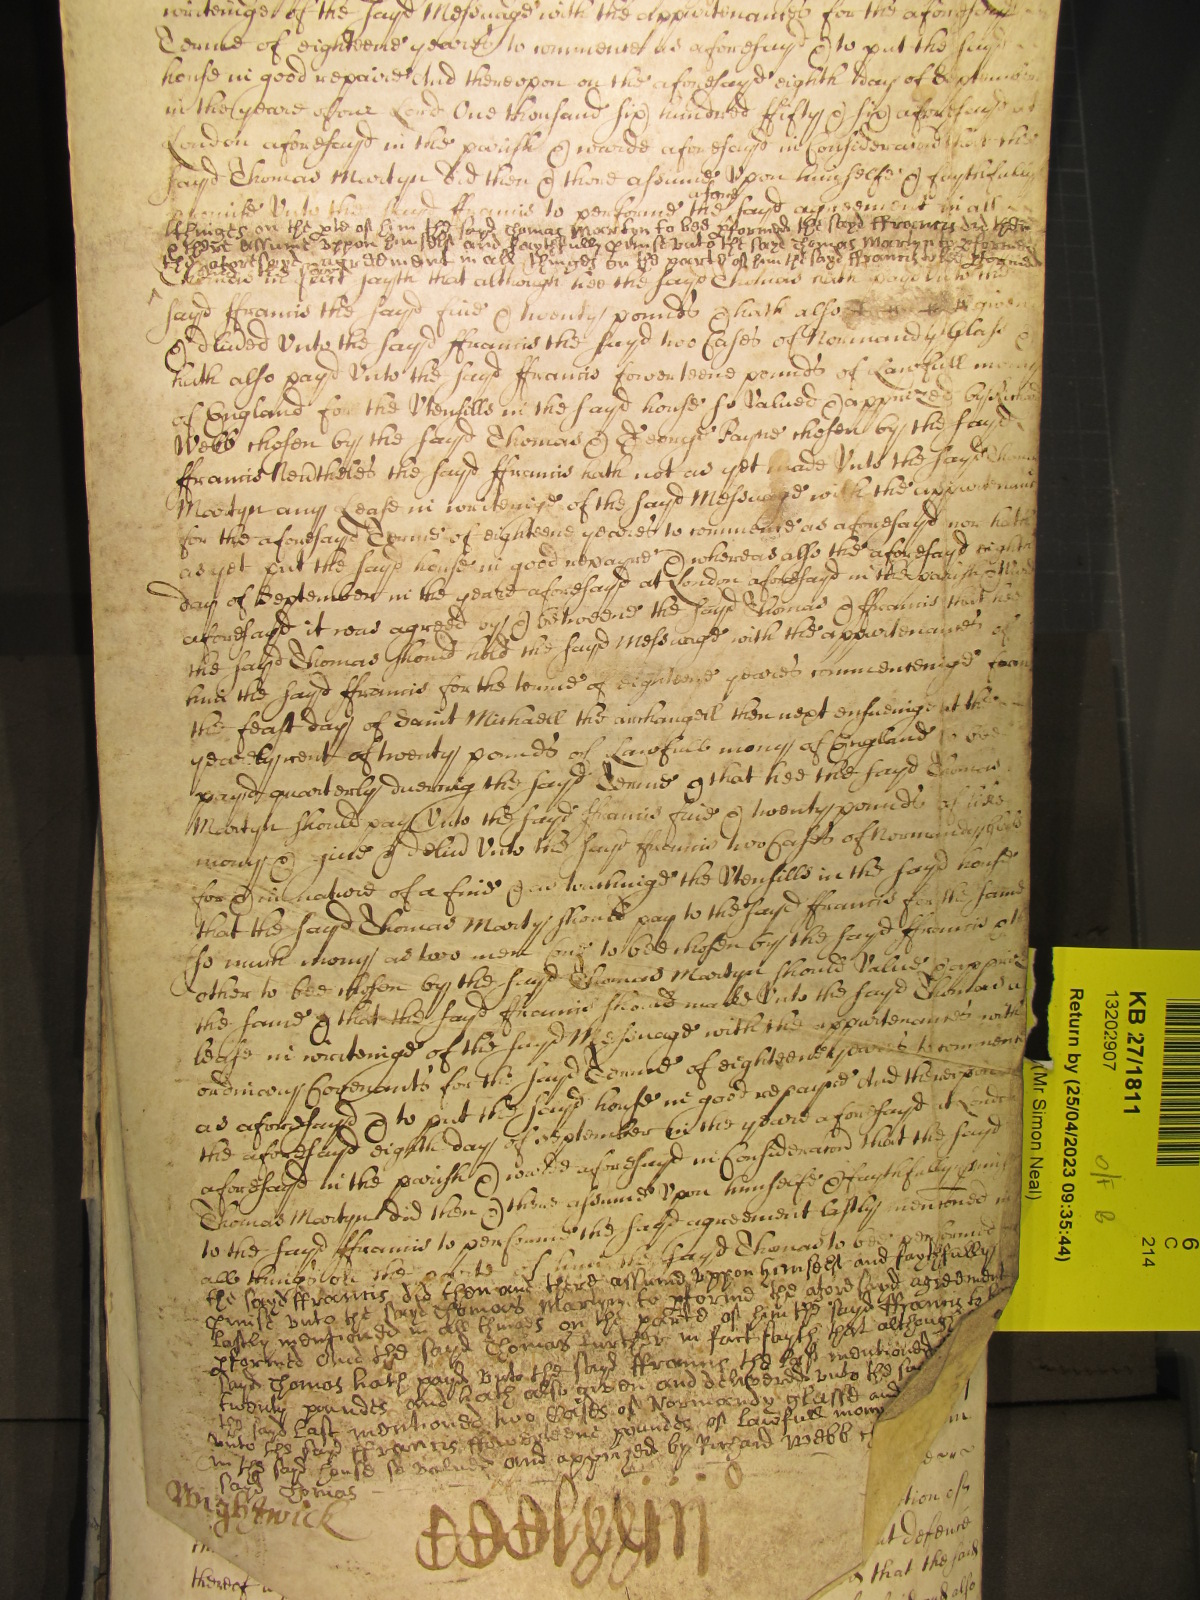 writeinge of the sayd Messuage with the appurtenances for the aforesayd
Terme of eighteene yeares to commence as aforesayd & to put the sayd
house in good repaire And thereupon on the aforesayd eighth day of September
in the yeare of our Lord One thousand six hundred ffifty & six aforesayd at
London aforesayd in the parish & warde aforesayd in Consideracon that the
sayd Thomas Martyn did then & there assume Upon himselfe & faythfully
promise Unto the sayd ffrancis to performe the afore sayd agreement in all
thinges on the pte of him the sayd Thomas Martyn to bee pformed the sayd ffrancis did then
& there assume uppon himself and faythfully pmise unto the sayd Thomas Martyn to pforme
the aforesayd agreement in all thinges on the parte of him the sayd ffrancis to bee pformed
in fact sayth that although hee the sayd Thomas hath payd unto the
sayd ffrancis the sayd five & twenty pounds & hath also given
& delived Unto the sayd ffrancis the sayd two Cases of Normandy glase &
hath also payd Unto the sayd ffrancis fowerteene pounds of Lawfull mony
of England for the Utensills in the sayd house so Valued & apprized by
Webb chosen by the sayd Thomas & George Payne chosen by the sayd
ffrancis Neutheles the sayd ffrancis hath not as yet made Unto the sayd Thomas
Martyn any Lease in writeinge of the sayd Messuage with the appurtenants
for the aforesayd Terme of eighteene yeares to commence as aforesayd nor hath
as yet put the sayd house in good repayre & whereas also the aforesayd eighth
day of September in the yeare aforesayd at London aforesayd in the parish & ward
aforesayd it was agreed by & betweene the sayd Thomas & ffrancis that hee
the sayd Thomas should hold the sayd Messuage with the appurtenances of
him the sayd ffrancis for the terme of eighteene yeares commenceinge from
the feast day of Saint Michaell the archangell then next ensueinge at the
yearely rent of twenty pounds of Lawfull mony of England to bee
payd quarterly dureing the sayd Terme & that hee the sayd Thomas
Martyn should pay Unto the sayd ffrancis five & twenty pounds of like
mony & give & delivd Unto the sayd ffrancis two Cases of Normandy glase
for & in nature of a fine & as touchinge the Utensills in the sayd house
that the sayd Thomas Martyn should pay to the sayd ffrancis for the same
so much mony as two men one to bee chosen by the sayd ffrancis & the
other to bee chosen by the sayd Thomas Martyn should Value & apprize
the same & that the sayd ffrancis should make Unto the sayd Thomas a
lease in writeinge of the sayd Messuage with the appurtenances with
ordinary Covenants for the sayd Terme of eighteene yeares to commence
as aforesayd & to put the sayd house in good repayre And thereupon
the aforesayd eighth day of September in the yeare aforesayd at London
aforesayd in the parish & warde aforesayd in Consideracon that the sayd
Thomas Martyn did then & there assume Upon himselfe & faythfully pmise
to the sayd ffrancis to performe the sayd agreement lastly mentioned in
all things on the parte of him the sayd Thomas to bee performed
the sayd ffrancis did then and there assume uppon himself and faythfully
pmise unto the sayd Thomas Martyn to pforme the aforesayd agreement
lastly mentioned in all thinges on the parte of him the sayd ffrancis to be
pformed And the sayd Thomas further in fact sayth that although
sayd Thomas hath payd unto the sayd ffrancis the last mentioned
twenty poundes and hath also given and delivered unto the sayd
the sayd last mentioned two Cases of Normandy glasse and
unto the sayd ffrancis fowerteene poundes of lawfull mony
in the sayd house so valued and apprized by Richard Webb
sayd Thomas
Wightwick
thereof
defence
that the sayd
also
KB 27/1811
13202907
Return by (25/04/2023 09:35:44)
(Mr Simon Neal)
6
C
214